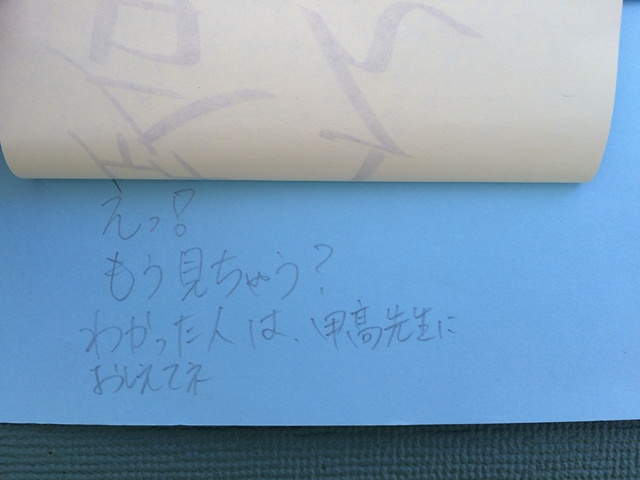 えっ!
もう見ちゃう?
わかった人は、甲高先生に
おしえてネ